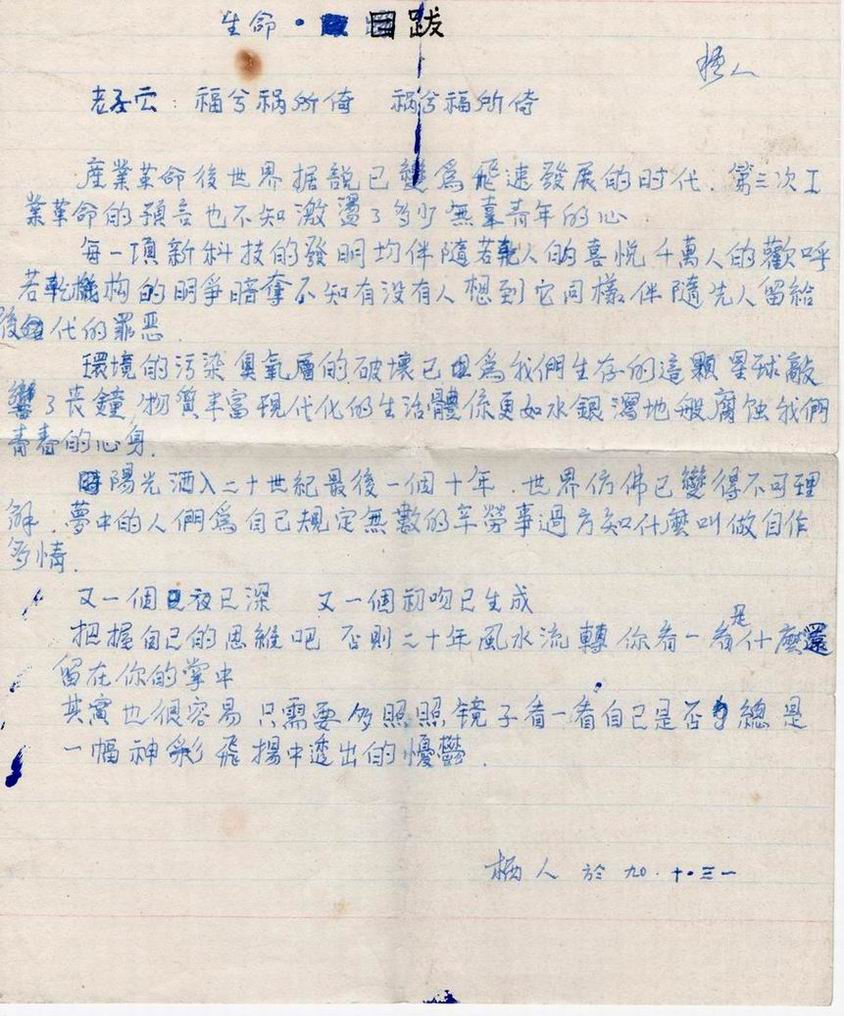 生命·目跋
栖人
老子云：福兮祸所倚 祸兮福所倚
産業革命後世界据説已變爲飛速發展的时代．第三次工
業革命的預告也不知激盪了多少無辜青年的心
每一項新科技的發明均伴隨若乾人的喜悦千萬人的歡呼
若乾機构的明爭暗奪不知有没有人想到它同樣伴隨先人留給
後代的罪恶．
環境的污染臭氧層的破壞已爲我們生存的這顆星球敲
響了丧鐘，物質丰富現代化的生活體係更如水銀瀉地般腐蝕我們
青春的心身．
陽光洒入二十世紀最後一個十年．世界仿佛已變得不可理
解．夢中的人們爲自己規定無數的辛勞事過方知什麽叫做自作
多情．
又一個夜已深 又一個初吻已生成
把握自己的思維吧 否則二十年風水流轉你看一看是什麽還
留在你的掌中
其實也很容易只需要多照照镜子看一看自己是否總是
一幅神彩飛揚中透出的憂鬱．
栖人 於 九〇·十·三一